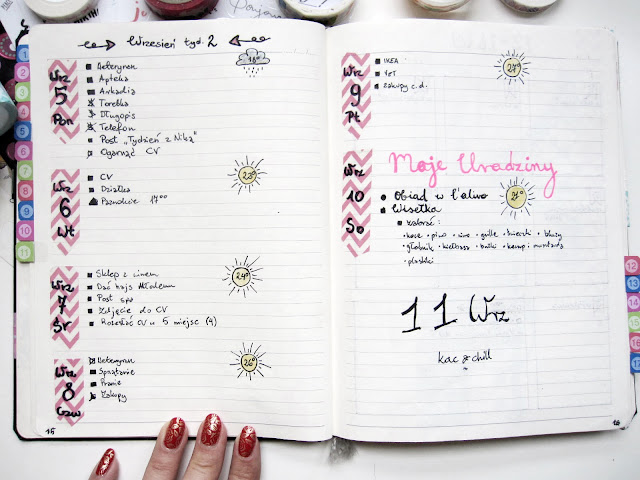 Wrzesień tyd. 2
Wrz
5
Pon
18°
Weterynarz
Apteka
Arkadia
Torebka
Długopis
Telefon
Post „Tydzień z Niką"
Ogarnąć CV
Wrz
6
Wt
23°
CV
Działka
Paznokcie 17:00
Wrz
7
Śr
24°
Sklep z winem
Dać hajs
Post
Zdjęcie do CV
Rozesłać CV w 5 miejsc (4)
Wrz
8
Czw
26°
Weterynarz
Sprzątanie
Pranie
Zakupy
15
Wrz
9
Pt
27°
IKEA
VET
Zakupy c.d.
Wrz
10
So
Moje Urodziny
Obiad w L'olivo
Wisełka
zabrać:
koce • piwo • wino • grille • świeczki •
głośnik • kiełbasa • bułki • keczup i musztarda
11 Wrz
kac & chill
16
1
2
3
4
5
6
7
8
9
10
11
12
13
14
15
16
17